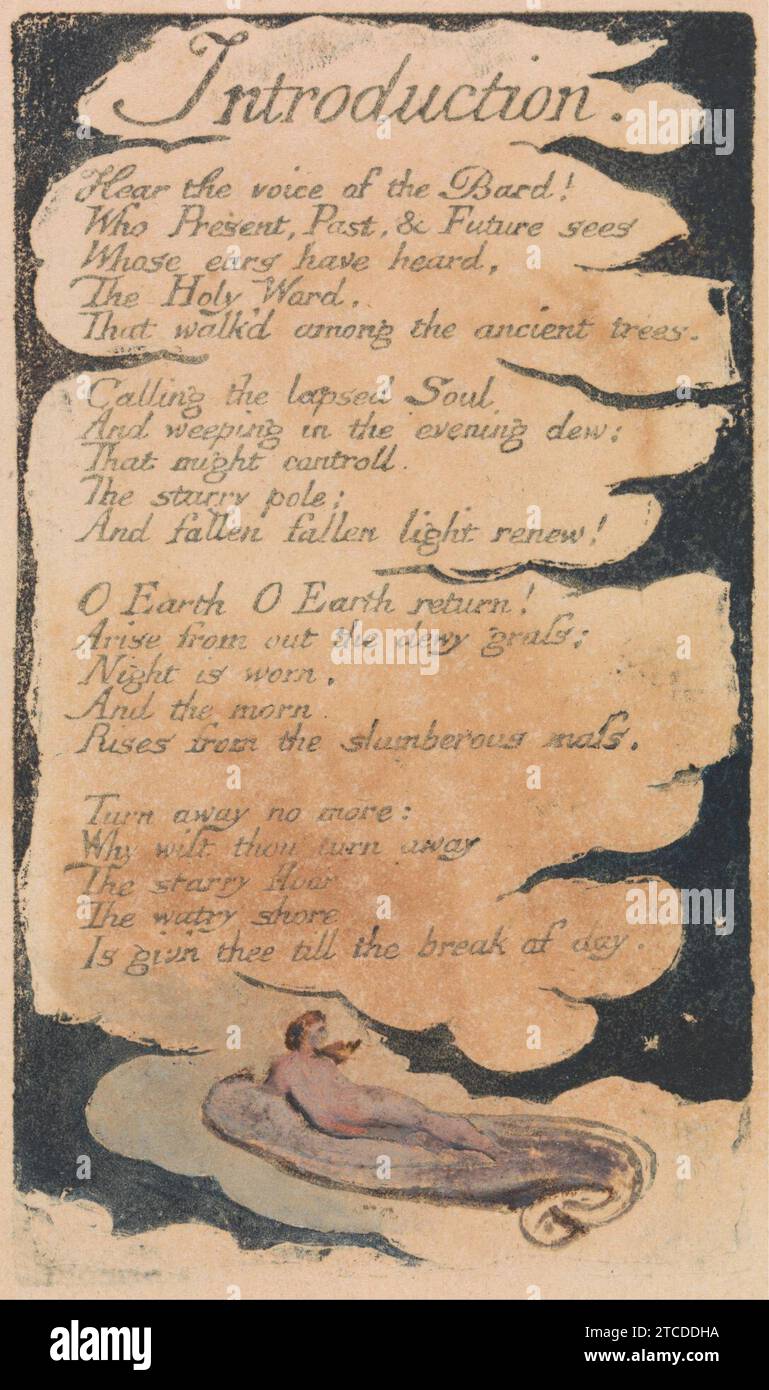 Introduction.
Hear the voice of the Bard!
Who Present, Past, & Future sees
Whose ears have heard,
The Holy Word,
That walk'd among the ancient trees.
Calling the lapsed Soul
And weeping in the evening dew:
That might controll.
The starry pole;
And fallen fallen light renew!
O Earth O Earth return!
Arise from out the dewy graſs;
Night is worn,
And the morn
Rises from the slumberous maſs.
Turn away no more:
Why wilt thou turn away
The starry floor
The watry shore
Is giv'n thee till the break of day.
a
alamy
Image ID: 2TCDDHA
www.alamy.com